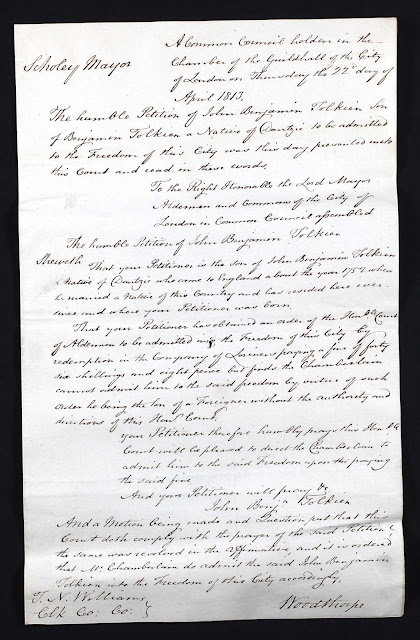 Scholey Mayor
A Common Council holden in the
Chamber of the Guildhall of the City
of London on Thursday the 22d day of
April 1813.
The humble Petition of John Benjamin Tolkien Son
of Benjamin Tolkien a Native of Dantzic to be admitted
to the Freedom of this City was this day presented unto
this Court and read in these words,
To the Right Honorable the Lord Mayor
Aldermen and Commons of the City of
London in Common Council assembled
The humble Petition of John Benjamin Tolkien
Sheweth That your Petitioner is the Son of John Benjamin Tolkien
a Native of Dantzic who came to England about the year 1752 when
he married a Native of this Country and has resided here ever
since and where your Petitioner was born.
That your Petitioner has obtained an order of the Honble Court
of Aldermen to be admitted into the Freedom of this City by
redemption in the Company of Loriners paying a fine of forty
six shillings and eight pence but finds the Chamberlain
cannot admit him to the said freedom by virtue of such
Order he being the son of a Foreigner without the authority and
directions of this Honble Court.
Your Petitioner therefore humbly prays this Honble
Court will be pleased to direct the Chamberlain to
admit him to the said Freedom upon the paying
the said fine
And your Petitioner will pray &c
John Benjn Tolkien
And a Motion being made and Question put that this
Court doth comply with the prayer of the said Petition
the same was resolved in the affirmative, and it is ordered
that Mr. Chamberlain do admit the said John Benjamin
Tolkien into the Freedom of this City accordingly,
T. N. Williams
Clk Co: Co: }
Woodthorpe